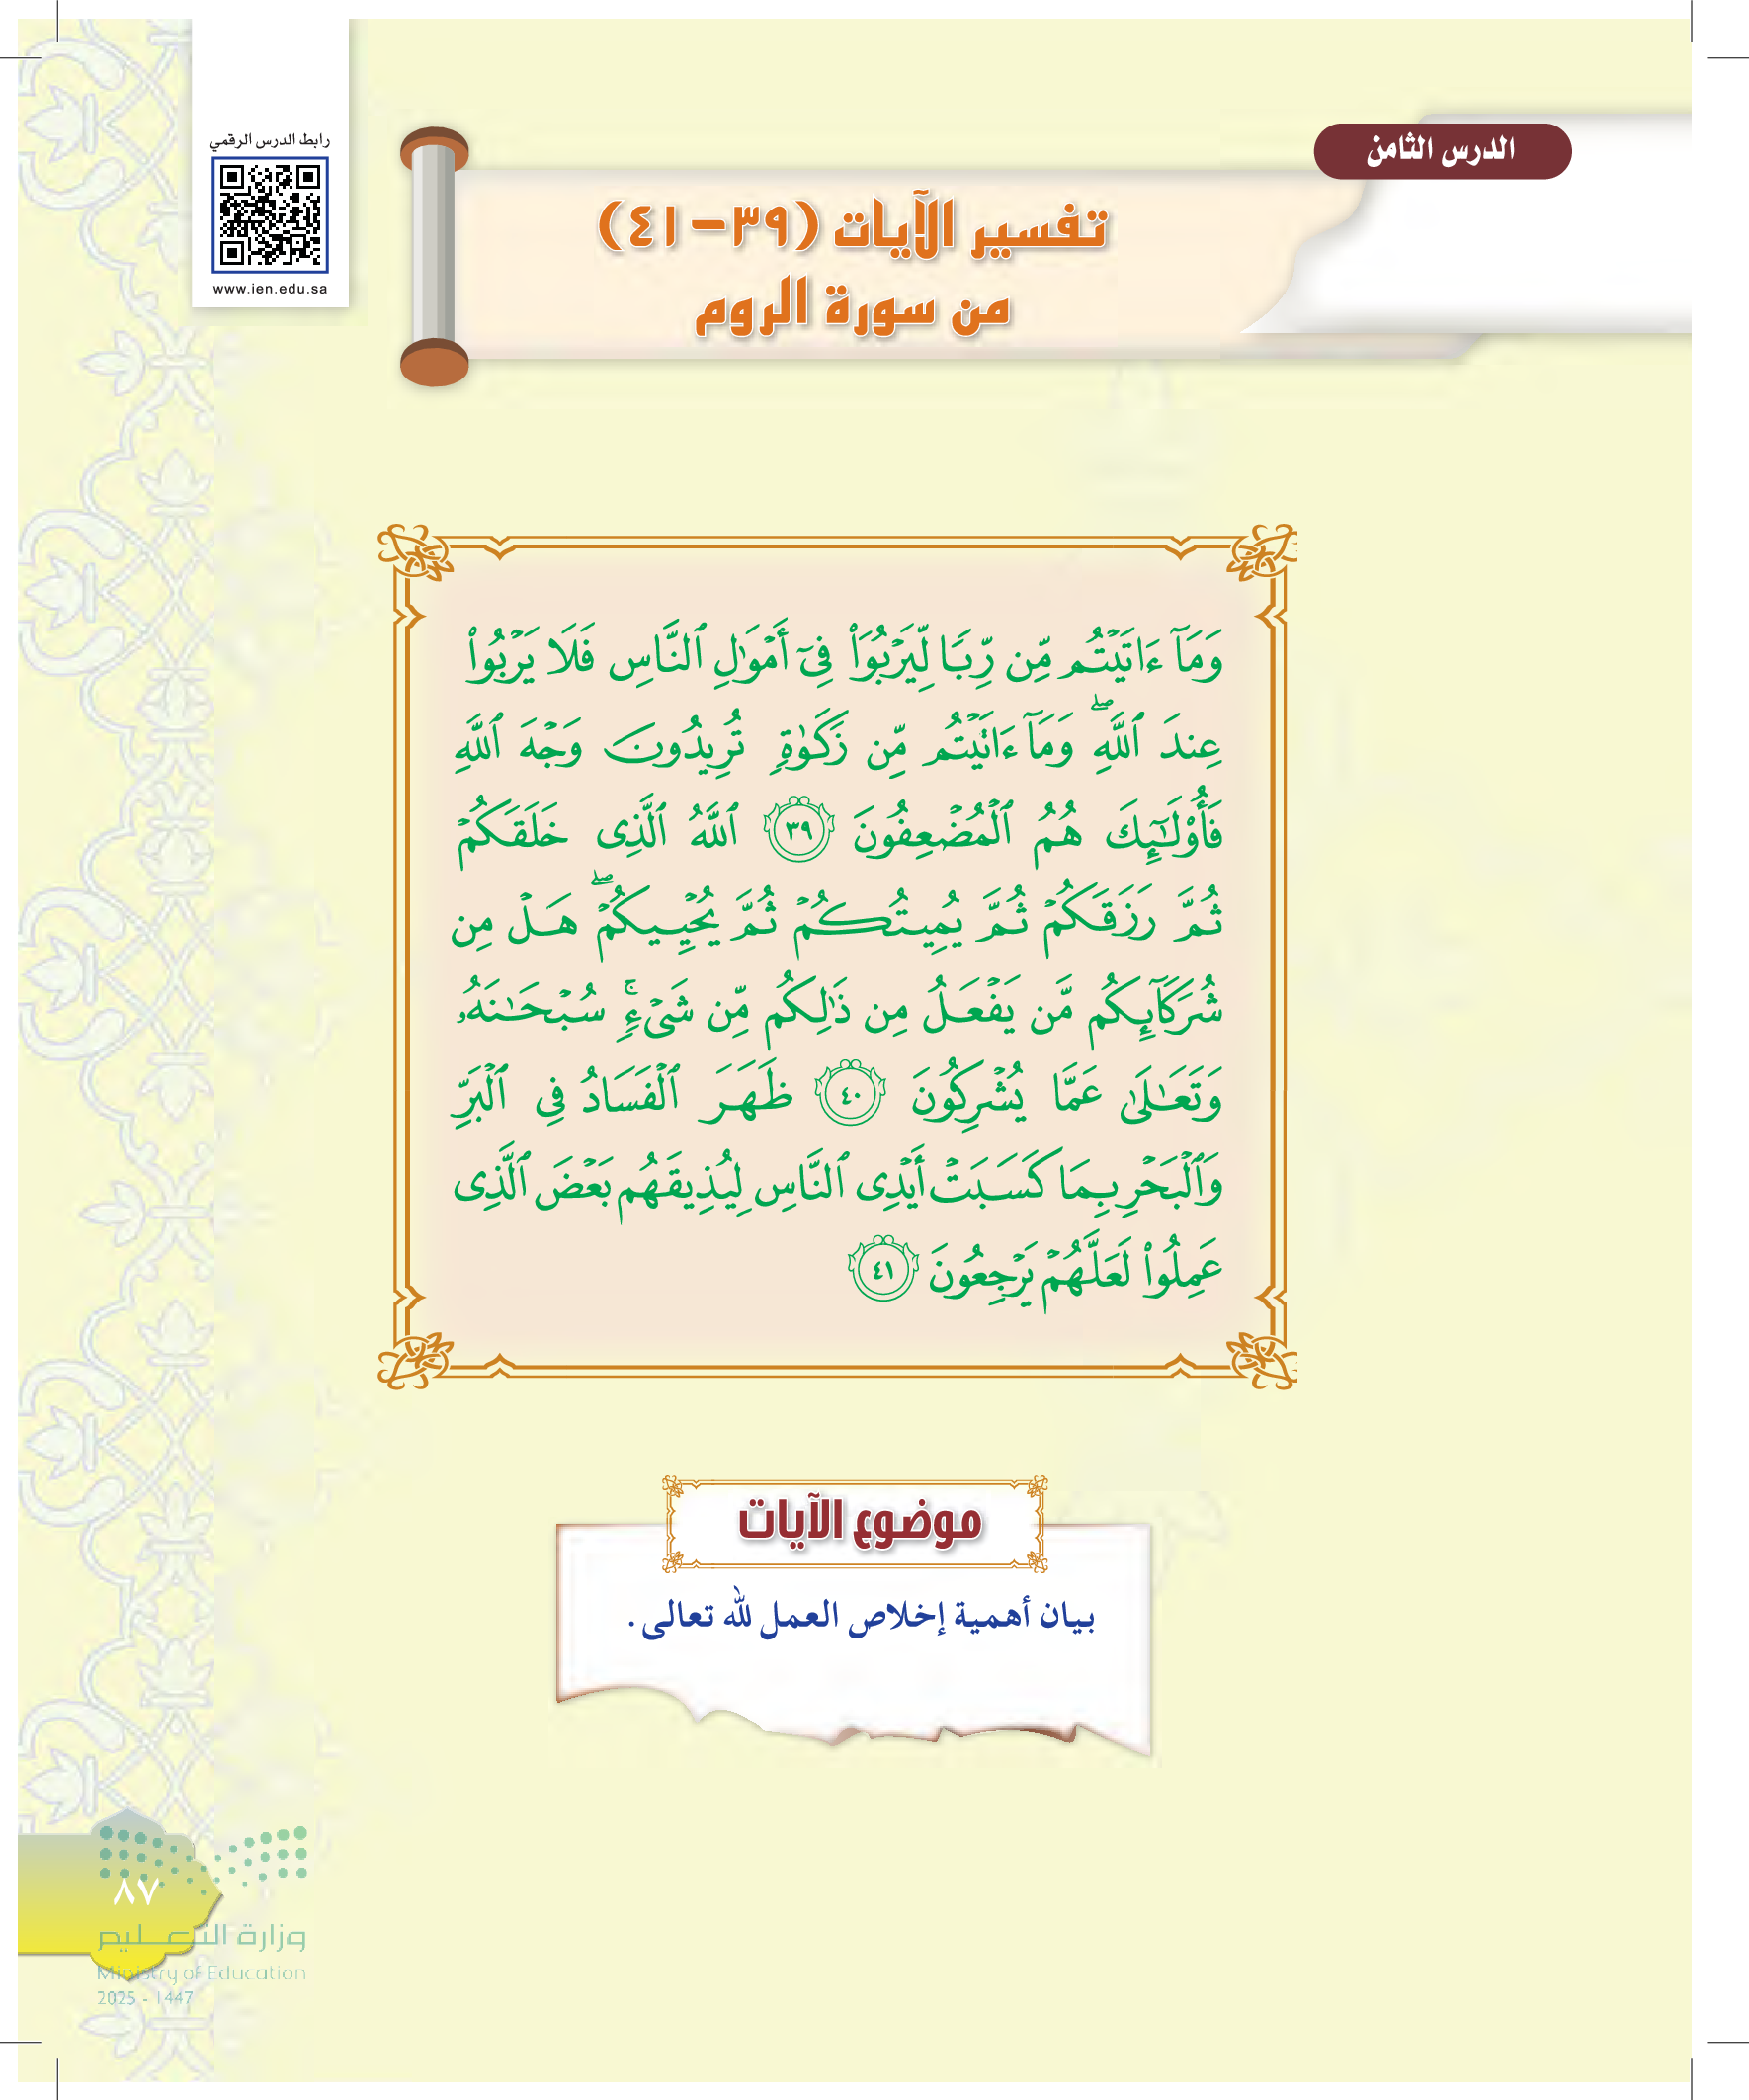 الدرس الثامن
رابط الدرس الرقمي
www.ien.edu.sa
تفسير الآيات (٣٩-٤١)
من سورة الروم
وَمَآ ءَاتَيۡتُم مِّن رِّبٗا لِّيَرۡبُوَاْ فِيٓ أَمۡوَٰلِ ٱلنَّاسِ فَلَا يَرۡبُواْ
عِندَ ٱللَّهِۖ وَمَآ ءَاتَيۡتُم مِّن زَكَوٰةٖ تُرِيدُونَ وَجۡهَ ٱللَّهِ
فَأُوْلَٰٓئِكَ هُمُ ٱلۡمُضۡعِفُونَ ٣٩ ٱللَّهُ ٱلَّذِي خَلَقَكُمۡ
ثُمَّ رَزَقَكُمۡ ثُمَّ يُمِيتُكُمۡ ثُمَّ يُحۡيِيكُمۡۖ هَلۡ مِن
شُرَكَآئِكُم مَّن يَفۡعَلُ مِن ذَٰلِكُم مِّن شَيۡءٖۚ سُبۡحَٰنَهُۥ
وَتَعَٰلَىٰ عَمَّا يُشۡرِكُونَ ٤٠ ظَهَرَ ٱلۡفَسَادُ فِي ٱلۡبَرِّ
وَٱلۡبَحۡرِ بِمَا كَسَبَتۡ أَيۡدِي ٱلنَّاسِ لِيُذِيقَهُم بَعۡضَ ٱلَّذِي
عَمِلُواْ لَعَلَّهُمۡ يَرۡجِعُونَ ٤١
موضوع الآيات
بيان أهمية إخلاص العمل لله تعالى.
٨٧
وزارة التعليم
Ministry of Education
2025 - 1447